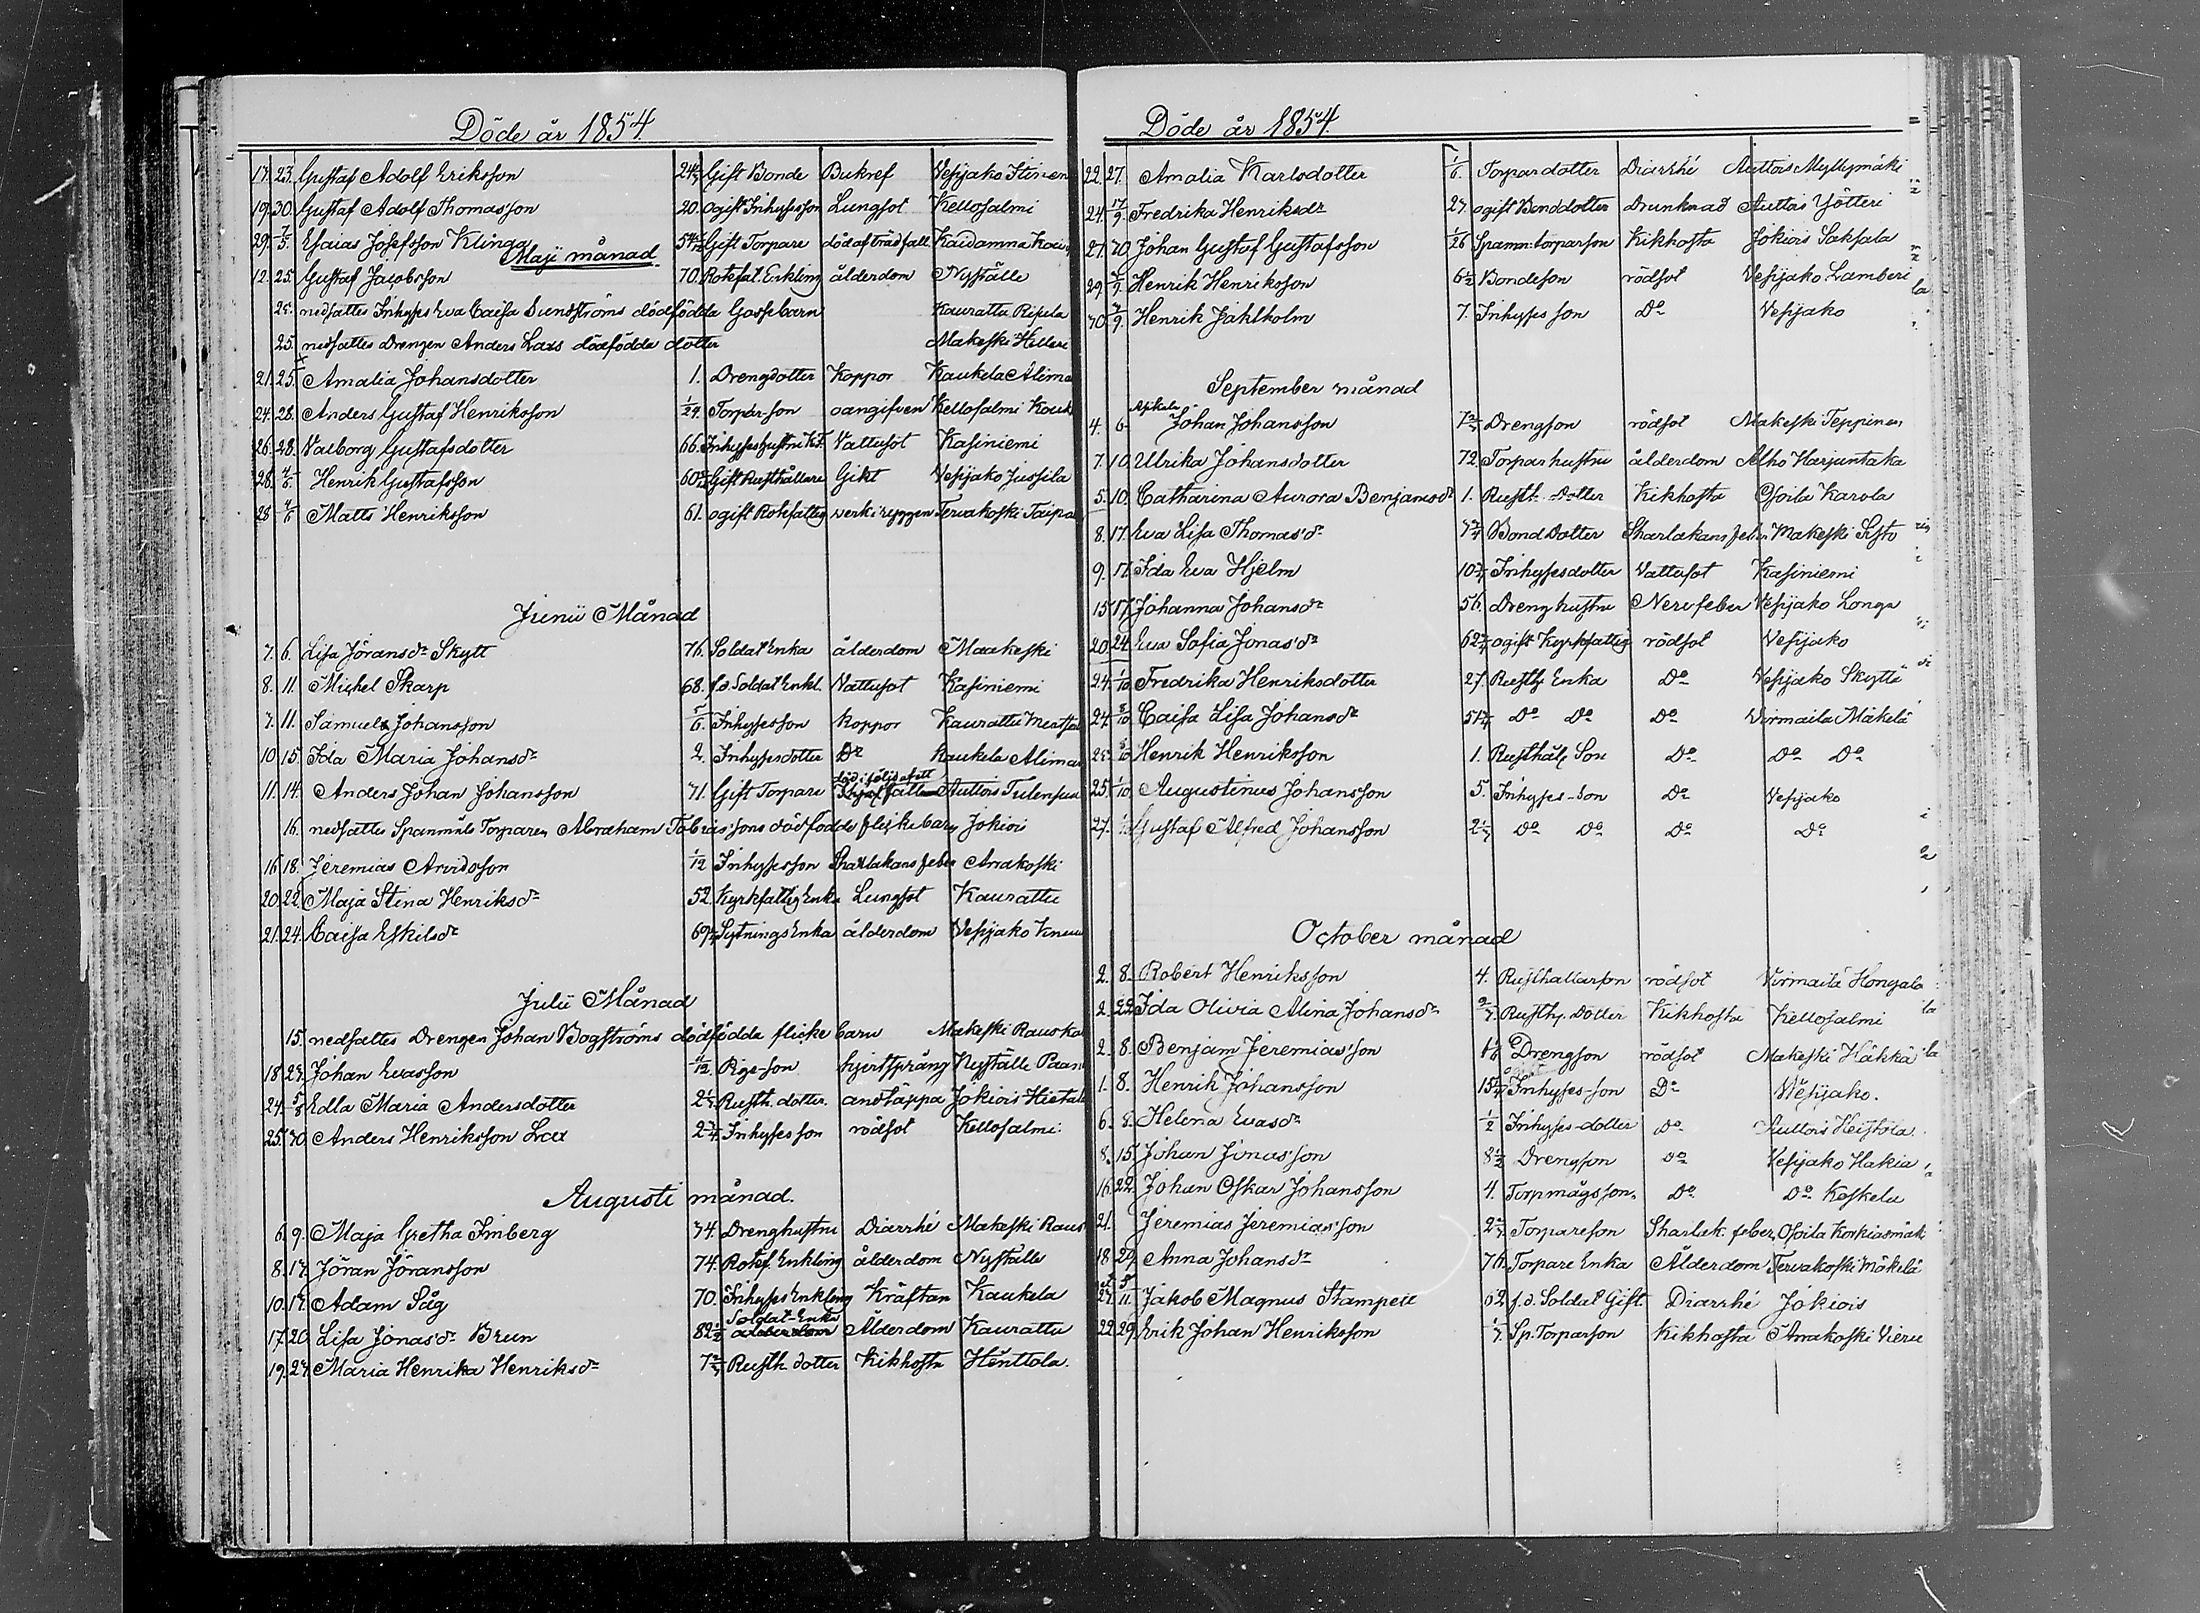 Döde år 1854.
17. 23. Gustaf Adolf Eriksson 24 Gift Bonde Bukref Vesijako
19. 30. Gustaf Adolf Thomasson 20. ogift Inhysesson Lungsot Kellosalmi
29. 7/5 Esaias Josefsson Klinga 54 Gift Torpare död af trädfall Kaidamna
Maji månad.
12. 25. Gustaf Jacobsson 70. Rotefat. Enkling ålderdom Nyställe
25. nedsattes Inhyses Eva Caisa Sundströms dödfödda Gossebarn Kaurattu Ripela
25. nedsattes Drengen Anders Lax's dödfödda dotter Makeski
21. 25. Amalia Johansdotter 1. Drengdotter Koppor Kaukela
24. 28. Anders Gustaf Henriksson 1/24. Torpar-son oangifven Kellosalmi
26. 28. Valborg Gustafsdotter 66. Inhyseshustru Vattusot Kasiniemi
28. 4/6 Henrik Gustafsson 60 Gift Rusthållare Gikt Vesijako Jussila
28 4/6 Matts Henriksson 61. ogift Rotefattig verk i ryggen Tervakoski
Junii Månad
7. 6. Lisa Jöransdr Skytt 76. Soldat Enka ålderdom Maakeski
8. 11. Michel Skarp 68. f.d. Soldat Enkl. Vattusot Kasiniemi
7. 11. Samuel Johansson 5/6. Inhysesson koppor Kaurattu
10 15. Ida Maria Johansdr 2. Inhysesdotter Do Kaukela
11. 14. Anders Johan Johansson 71. Gift Torpare död i följd af ett Auttois
16. nedsattes Spanmåls Torparen Abraham Tobias'sons dödfödde flickebarn Jokiois
16 18. Jeremias Arvidsson 1/12 Inhysesson Sharlakansfeber Arrakoski
20. 22. Maja Stina Henriksdr 52. Kyrkfattig Enka Lungsot Kaurattu
21. 24. Caisa Eskilsdr 69 Sytnings Enka ålderdom Vesijako
Julii Månad
15. nedsattes Drengen Johan Bogströms dödfödda flicke barn Makeski
18 27. Johan Evasson Pigs-son hjertsprång Nyställe
24. 5/8 Edla Maria Andersdotter 2 Rusth. dotter. andtäppa Jokiois
25. 30. Anders Henriksson Lax 2 Inhyses son rödsot Kellosalmi
Augusti månad.
6. 9. Maja Gretha Imberg 74. Drenghustru Diarrhé Makeski
8. 13. Jöran Jöransson 74. Rotef. Enkling ålderdom Nyställe
10. 13. Adam Såg 70. Inhyses Enkling Kräftan Kaukela
17. 20 Lisa Jonasdr Brun 82 1/2 Soldat-Enka Ålderdom Kaurattu
19. 27. Maria Henrika Henriksdr Rusth. dotter Kikhosta Henttola.
Döde år 1854.
22. 27. Amalia Karlsdotter 1/6. Torpardotter Diarrhé Auttois Myllymäki
24. Fredrika Henriksdr 27. ogift Bonddotter Drunknad Auttois Yötteri
27. 30 Johan Gustaf Gustafsson 1/26 Spanm: torparson Kikhosta Jokiois Saksala
29. 3/9. Henrik Henriksson 6 1/2 Bondeson rödsot Vesijako Lamberi
30. 3/9. Henrik Jahlholm 7. Inhyses son Do Vesijako
September månad
4. 6. Johan Johansson Drengson rödsot Makeski Teppinen
7. 10. Ulrika Johansdotter 72. Torparhustru ålderdom Alho Harjuntaka
5. 10. Catharina Aurora Benjamsdr 1. Rusth. Dotter Kikhosta Osoila Karola
8. 17. Eva Lisa Thomasdr Bond Dotter Sharlakans feber Makeski
9. 17. Ida Eva Hjelm 10 Inhysesdotter Vattusot Kasiniemi
15 17. Johanna Johansdr 56. Dreng hustru Nervfeber Vesijako
20. 24. Eva Sofia Jonasdr 62 ogift Kyrkfattig rödsot Vesijako
24. 1/10 Fredrika Henriksdotter 27. Rusth. Enka Do Vesijako Skyttä
24. Caisa Lisa Johansdr 51 Do Do Do Virmaila Mäkelä
Henrik Henriksson 1. Rusthål. Son Do Do Do
25. 1/10 Augustinus Johansson 5. Inhyses-son Do Vesijako
27. Gustaf Alfred Johansson 2 Do Do Do Do
October månad
2. 8. Robert Henriksson 4. Rusthållarson rödsot Virmaila Hongala
2. 22. Ida Olivia Alina Johansdr Rusth. Dotter Kikhosta Kellosalmi
2. 8. Benjam Jeremias'son Drengson rödsot Makeski Häkkä
1. 8. Henrik Johansson 15 Inhyses-son Do Vesijako.
6. 8. Helena Evasdr 1/2 Inhyses-dotter Do Auttois Heistola
8. 15. Johan Jonas'son 8 1/2 Drengson Do Vesijako Hakia
16. 22. Johan Oskar Johansson 4. Torpmågsson. Do Do Koskela
21. Jeremias Jeremias'son 2 Torpareson Sharlak. feber Osoila Korkiasmäk
18 29. Anna Johansdr 76. Torpare Enka Ålderdom Tervakoski Mäkelä
27. 5/11. Jakob Magnus Stampeu 62. f.d. Soldat Gift. Diarrhé Jokiois
22. 29. Erik Johan Henriksson Sp. Torparson Kikhosta Arrakoski Vieru